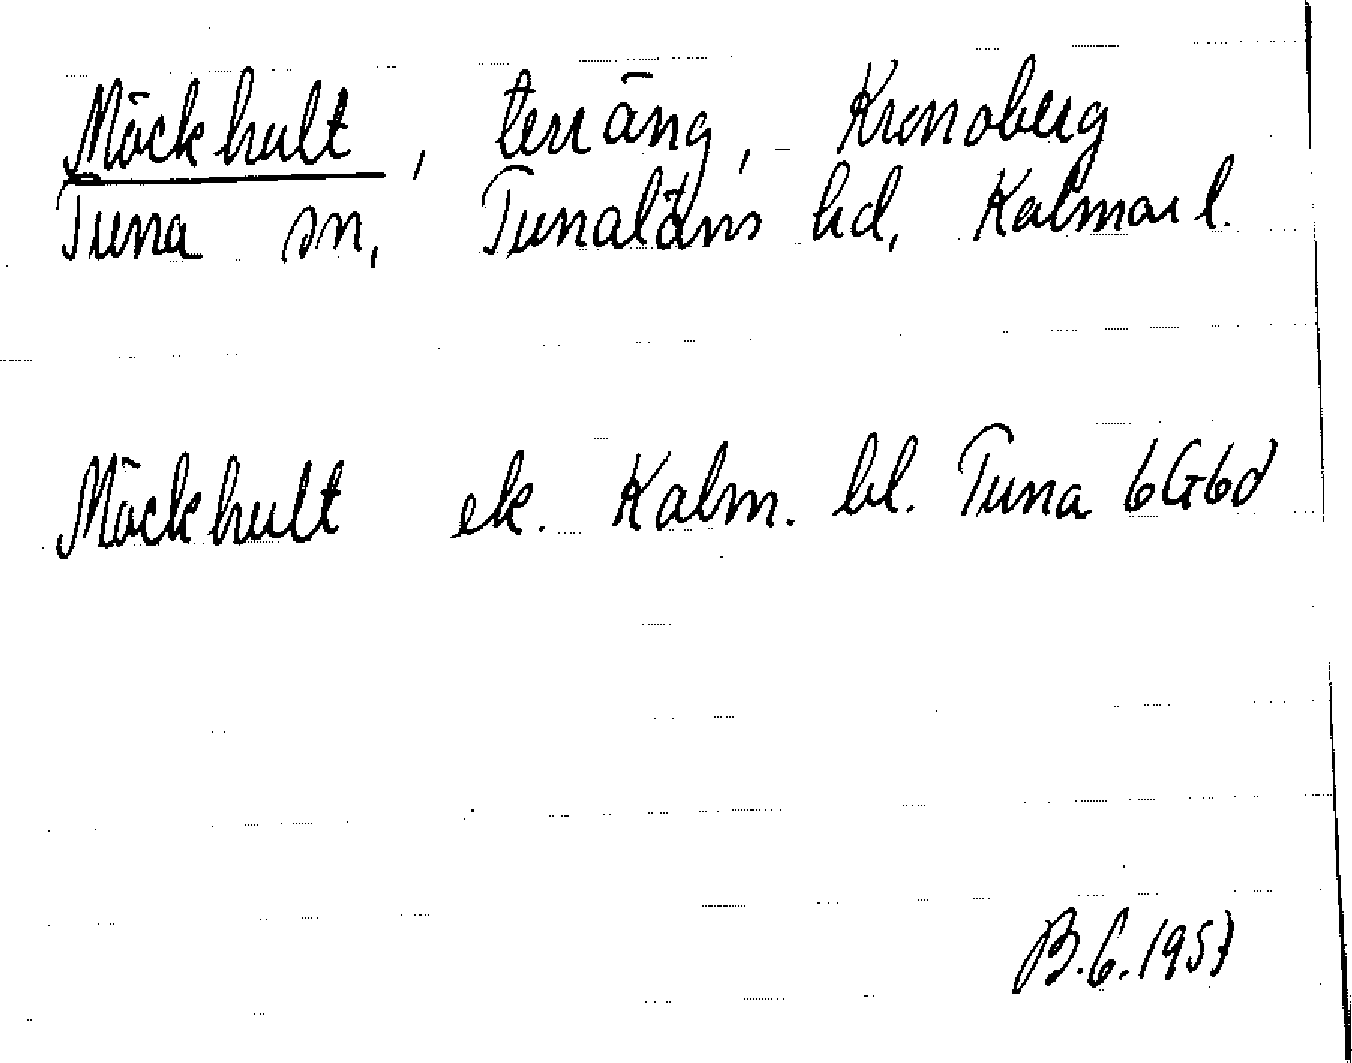 Möckhult, terräng, Kronoberg
Tuna sn, Tunaläns hd, Kalmar l.
Möckhult ek. Kalm. bl. Tuna 6G6d
B.G. 1957